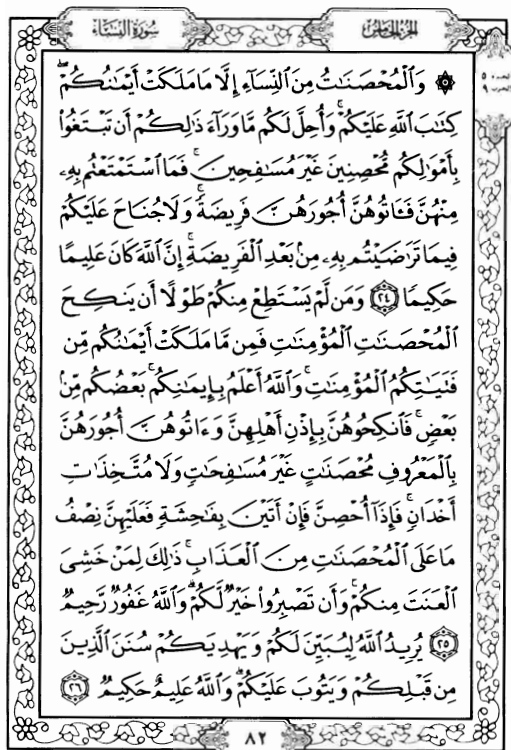 سُورَةُ النِّسَاءِ
الجُزْءُ الخَامِسُ
الجزء ٥
الحزب ٩
۞ وَٱلْمُحْصَنَٰتُ مِنَ ٱلنِّسَآءِ إِلَّا مَا مَلَكَتْ أَيْمَٰنُكُمْ ۖ
كِتَٰبَ ٱللَّهِ عَلَيْكُمْ ۚ وَأُحِلَّ لَكُم مَّا وَرَآءَ ذَٰلِكُمْ أَن تَبْتَغُوا۟
بِأَمْوَٰلِكُم مُّحْصِنِينَ غَيْرَ مُسَٰفِحِينَ ۚ فَمَا ٱسْتَمْتَعْتُم بِهِۦ
مِنْهُنَّ فَـَٔاتُوهُنَّ أُجُورَهُنَّ فَرِيضَةً ۚ وَلَا جُنَاحَ عَلَيْكُمْ
فِيمَا تَرَٰضَيْتُم بِهِۦ مِنۢ بَعْدِ ٱلْفَرِيضَةِ ۚ إِنَّ ٱللَّهَ كَانَ عَلِيمًا
حَكِيمًا ﴿٢٤﴾ وَمَن لَّمْ يَسْتَطِعْ مِنكُمْ طَوْلًا أَن يَنكِحَ
ٱلْمُحْصَنَٰتِ ٱلْمُؤْمِنَٰتِ فَمِن مَّا مَلَكَتْ أَيْمَٰنُكُم مِّن
فَتَيَٰتِكُمُ ٱلْمُؤْمِنَٰتِ ۚ وَٱللَّهُ أَعْلَمُ بِإِيمَٰنِكُم ۚ بَعْضُكُم مِّنۢ
بَعْضٍ ۚ فَٱنكِحُوهُنَّ بِإِذْنِ أَهْلِهِنَّ وَءَاتُوهُنَّ أُجُورَهُنَّ
بِٱلْمَعْرُوفِ مُحْصَنَٰتٍ غَيْرَ مُسَٰفِحَٰتٍ وَلَا مُتَّخِذَٰتِ
أَخْدَانٍ ۚ فَإِذَآ أُحْصِنَّ فَإِنْ أَتَيْنَ بِفَٰحِشَةٍ فَعَلَيْهِنَّ نِصْفُ
مَا عَلَى ٱلْمُحْصَنَٰتِ مِنَ ٱلْعَذَابِ ۚ ذَٰلِكَ لِمَنْ خَشِىَ
ٱلْعَنَتَ مِنكُمْ ۚ وَأَن تَصْبِرُوا۟ خَيْرٌ لَّكُمْ ۗ وَٱللَّهُ غَفُورٌ رَّحِيمٌ
﴿٢٥﴾ يُرِيدُ ٱللَّهُ لِيُبَيِّنَ لَكُمْ وَيَهْدِيَكُمْ سُنَنَ ٱلَّذِينَ
مِن قَبْلِكُمْ وَيَتُوبَ عَلَيْكُمْ ۗ وَٱللَّهُ عَلِيمٌ حَكِيمٌ ﴿٢٦﴾
٨٢